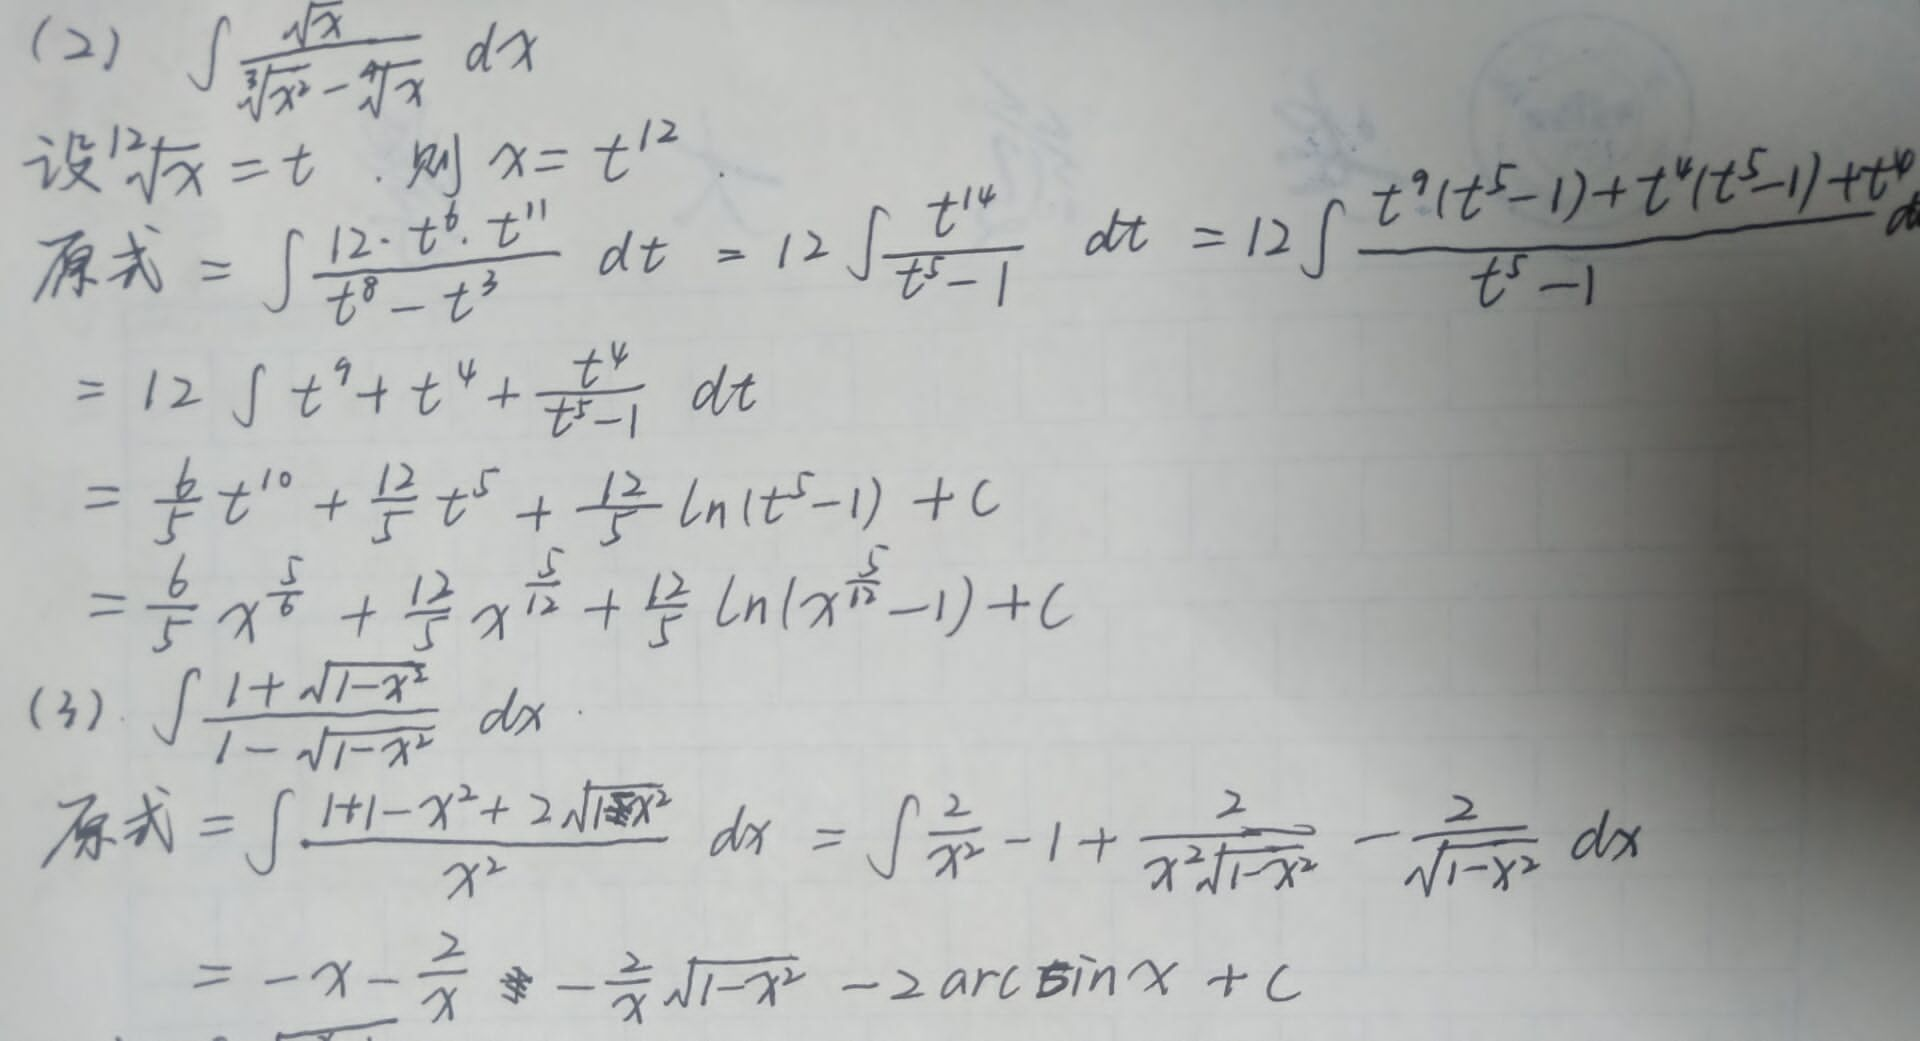 (2) ∫ √x / (∛x² − ∜x) dx
设 ¹²√x = t . 则 x = t¹² .
原式 = ∫ (12 · t⁶ · t¹¹) / (t⁸ − t³) dt = 12 ∫ t¹⁴ / (t⁵ − 1) dt = 12 ∫ (t⁹(t⁵−1) + t⁴(t⁵−1) + t⁴) / (t⁵ − 1) d
= 12 ∫ t⁹ + t⁴ + t⁴/(t⁵−1) dt
= 6/5 t¹⁰ + 12/5 t⁵ + 12/5 ln(t⁵−1) + C
= 6/5 x^(5/6) + 12/5 x^(5/12) + 12/5 ln(x^(5/12) − 1) + C
(3). ∫ (1 + √(1−x²)) / (1 − √(1−x²)) dx .
原式 = ∫ (1+1−x² + 2√(1−x²)) / x² dx = ∫ 2/x² − 1 + 2/(x²√(1−x²)) − 2/√(1−x²) dx
= −x − 2/x − 2/x √(1−x²) − 2 arc sin x + C